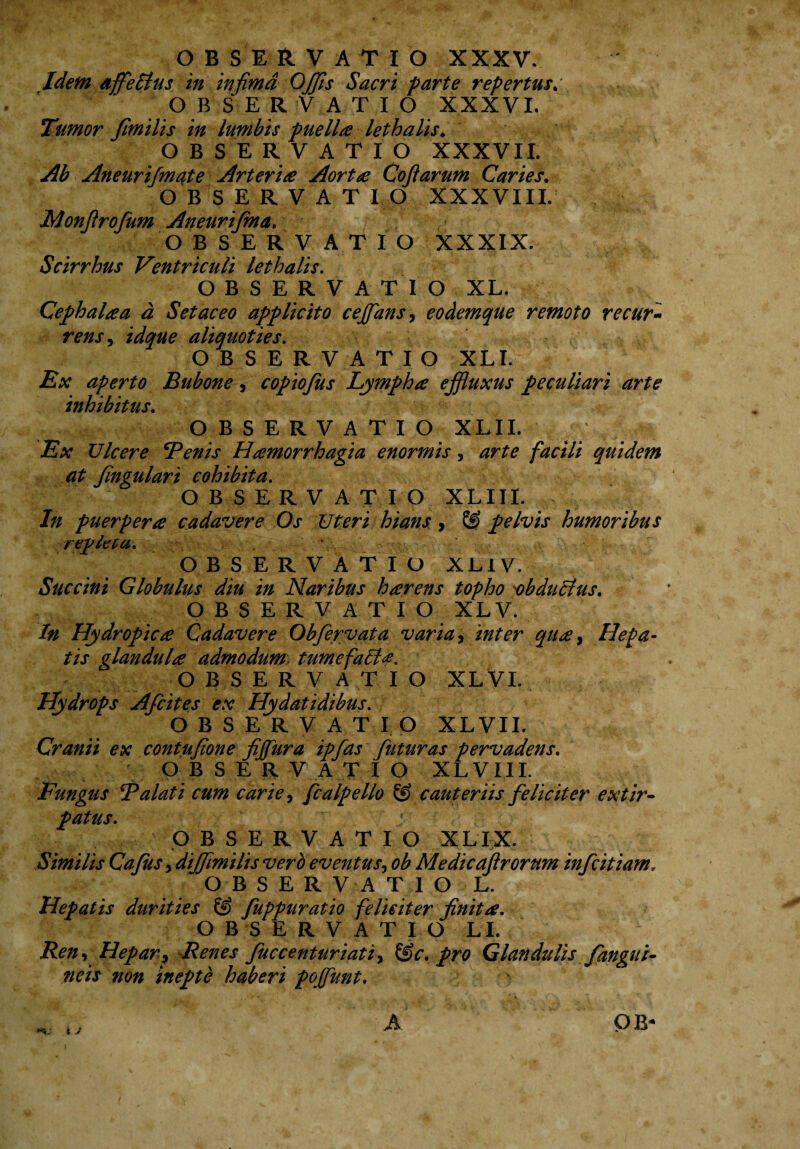 OBSERVATIO XXXV.
Idem affectus in infimâ Ossis Sacri parte repertus.
OBSERVATIO XXXVI.
Tumor similis in lumbis puellæ lethalis.
OBSERVATIO XXXVII.
Ab Aneurismate Arteriæ Aortæ Costarum Caries.
OBSERVATIO XXXVIII.
Monstrosum Aneurisma.
OBSERVATIO XXXIX.
Scirrhus Ventriculi lethalis.
OBSERVATIO XL.
Cephalæa à Setaceo applicito cessans, eodemque remoto recur-
rens, idque aliquoties.
OBSERVATIO XLI.
Ex aperto Bubone, copiosus Lymphæ effluxus peculiari arte
inhibitus.
OBSERVATIO XLII.
Ex Ulcere Penis Hæmorrhagia enormis, arte facili quidem
at singulari cohibita.
OBSERVATIO XLIII.
In puerperæ cadavere Os Uteri hians, & pelvis humoribus
repleta.
OBSERVATIO XLIV.
Succini Globulus diu in Naribus hærens topho obductus.
OBSERVATIO XLV.
In Hydropicæ Cadavere Observata varia, inter quæ, Hepa-
tis glandulæ admodum tumefactæ.
OBSERVATIO XLVI.
Hydrops Ascites ex Hydatidibus.
OBSERVATIO XLVII.
Cranii ex contusione fissura ipsas suturas pervadens.
OBSERVATIO XLVIII.
Fungus Palati cum carie, scalpello & cauteriis feliciter extir-
patus.
OBSERVATIO XLIX.
Similis Casus, dissimilis verò eventus, ob Medicastrorum inscitiam.
OBSERVATIO L.
Hepatis durities & suppuratio feliciter finitæ.
OBSERVATIO LI.
Ren, Hepar, Renes succenturiati, &c. pro Glandulis sangui-
neis non ineptè haberi possunt.
A OB-